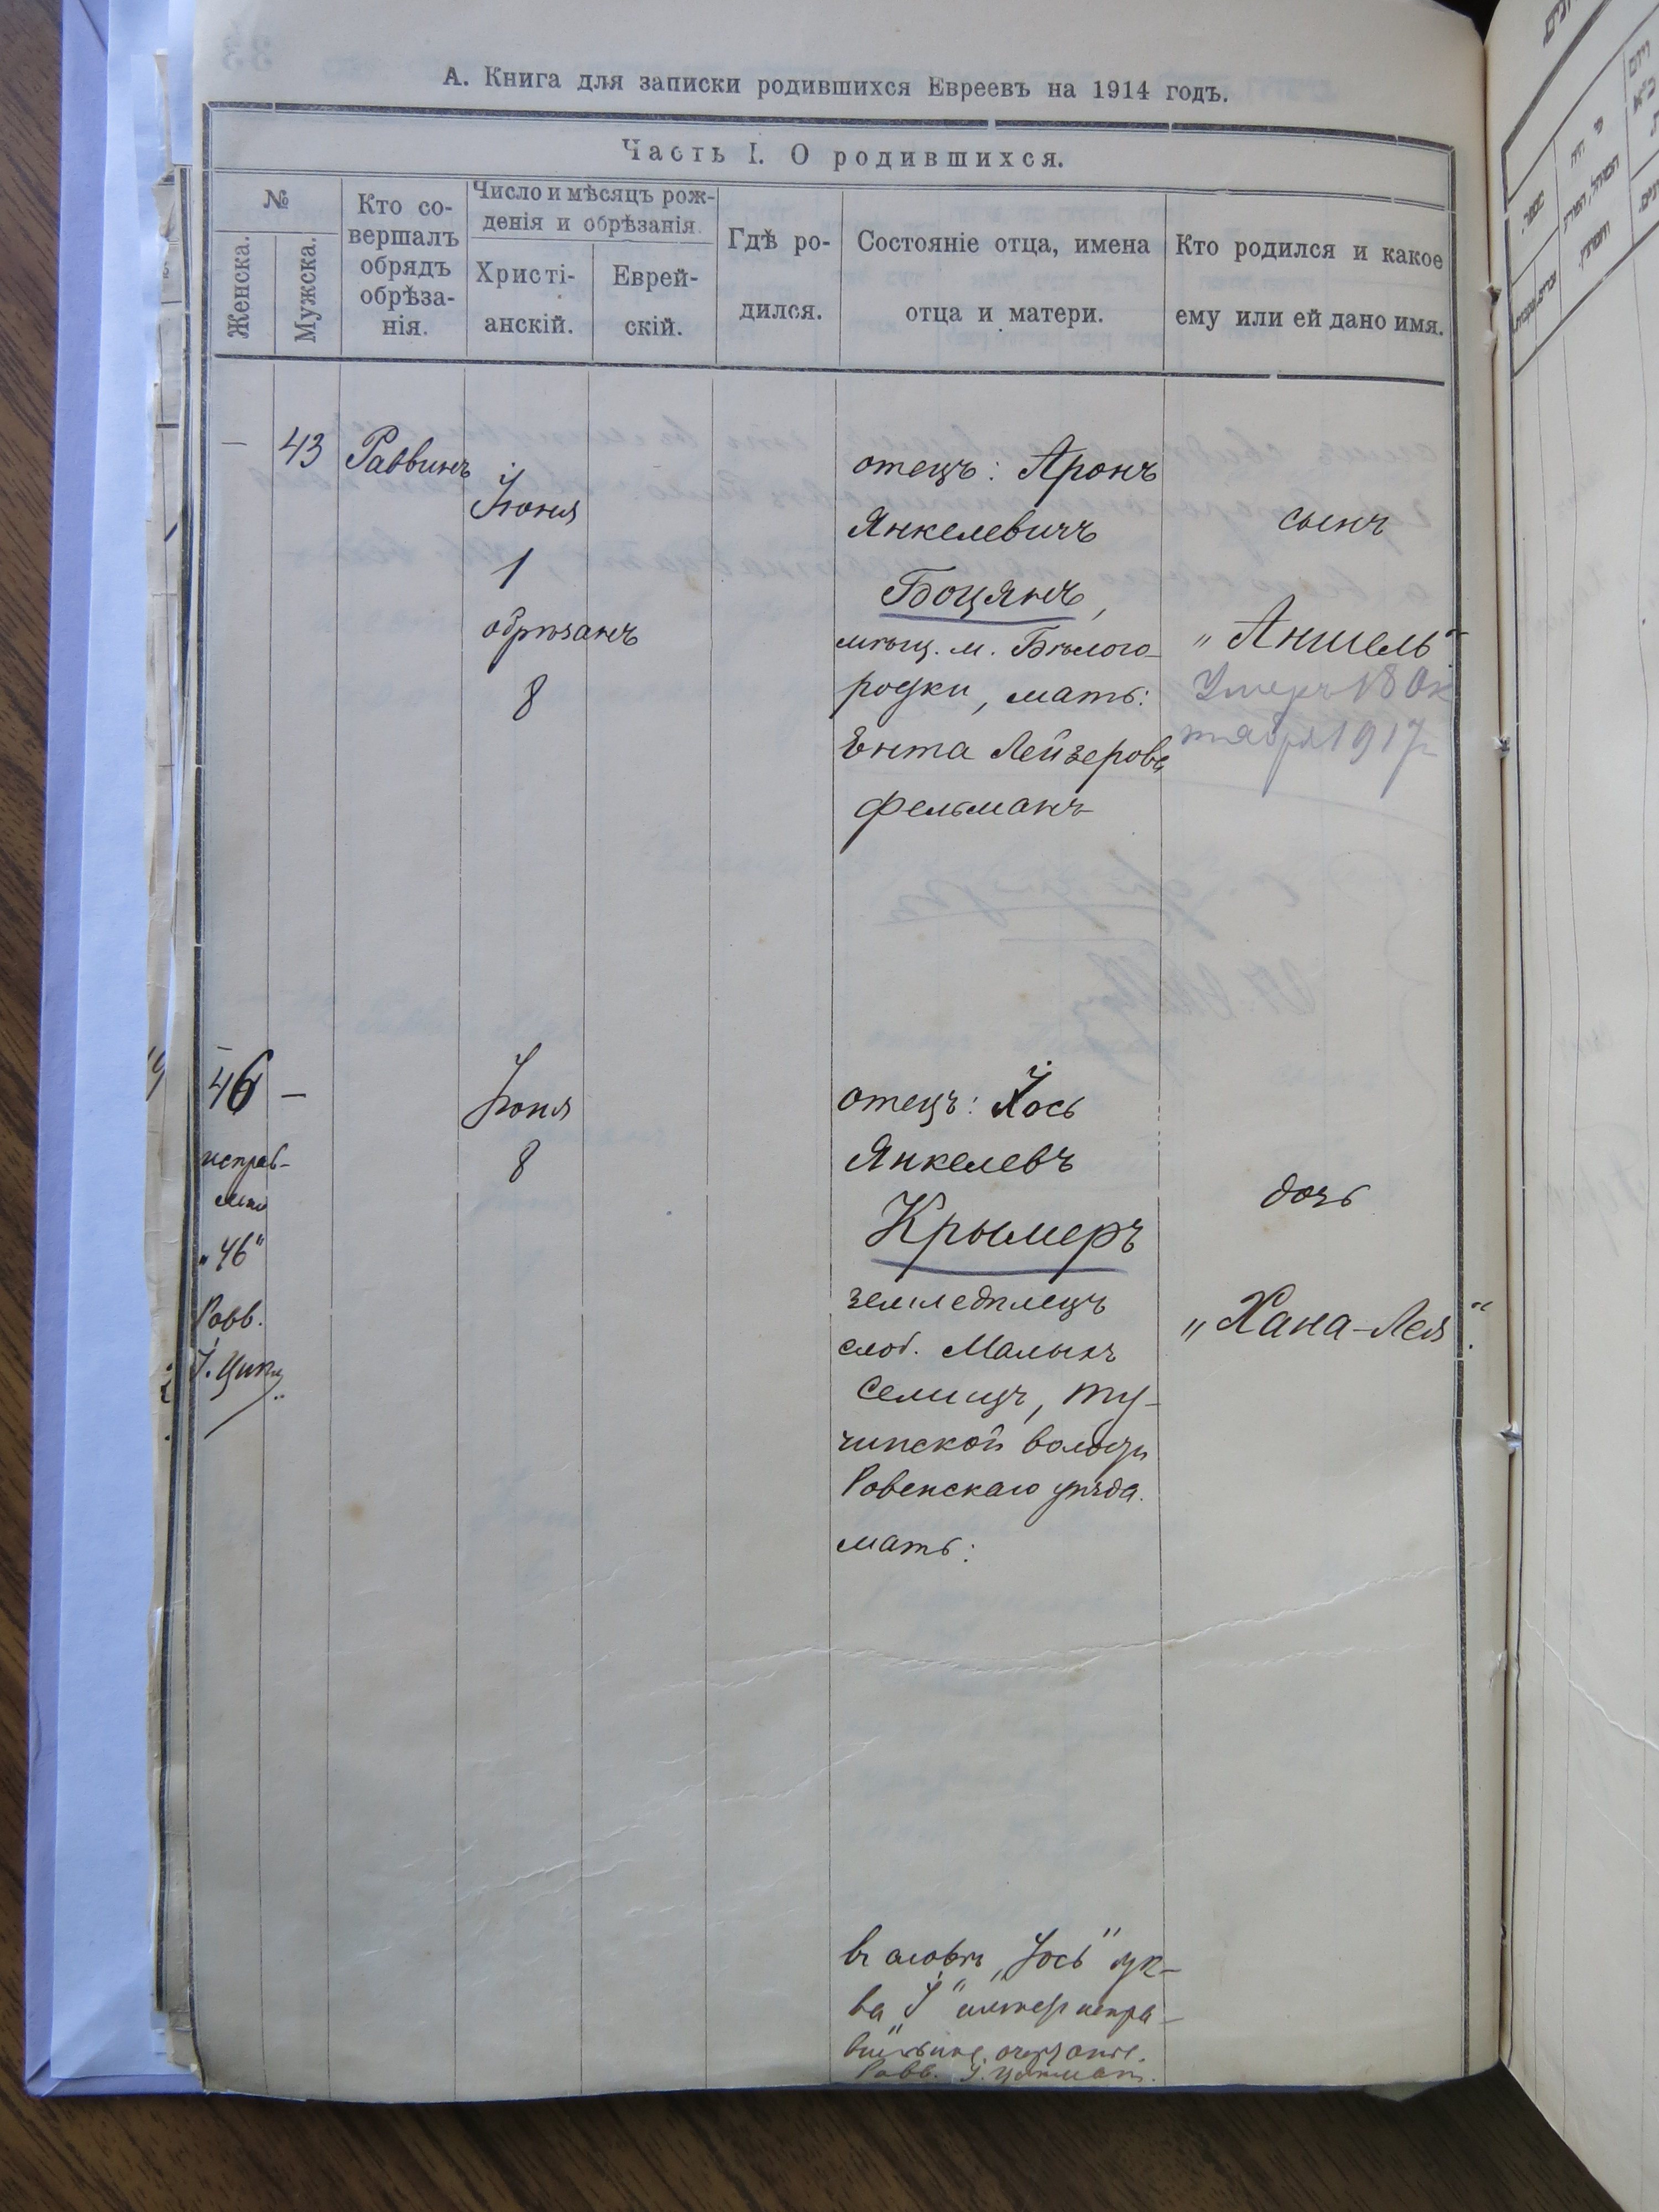 А. Книга для записки родившихся Евреевъ на 1914 годъ.
Часть I. О родившихся.
№
Женска.
Мужска.
Кто со-
вершалъ
обрядъ
обрѣза-
нія.
Число и мѣсяцъ рож-
денія и обрѣзанія.
Христі-
анскій.
Еврей-
скій.
Гдѣ ро-
дился.
Состояніе отца, имена
отца и матери.
Кто родился и какое
ему или ей дано имя.
— 43 Раввинъ
Іюня
1
обрѣзанъ
8
отецъ: Аронъ
Янкелевичъ
Боцянъ,
мѣщ. м. Бѣлого-
родки, мать:
Ента Лейзерова
Фельманъ
сынъ
„Аншель“
Умеръ 18 Ок
тября 1917 г
46 —
исправ-
лено
„46“
Равв.
Іюня
8
отецъ: Іось
Янкелевъ
Крымеръ
земледѣлецъ
слоб. Малыхъ
Селищъ, Ту-
чинской волости
Ровенскаго уѣзда.
мать:
дочь
„Хана-Лея“.
въ словѣ „Іось“ бук-
ва „І“
Равв.